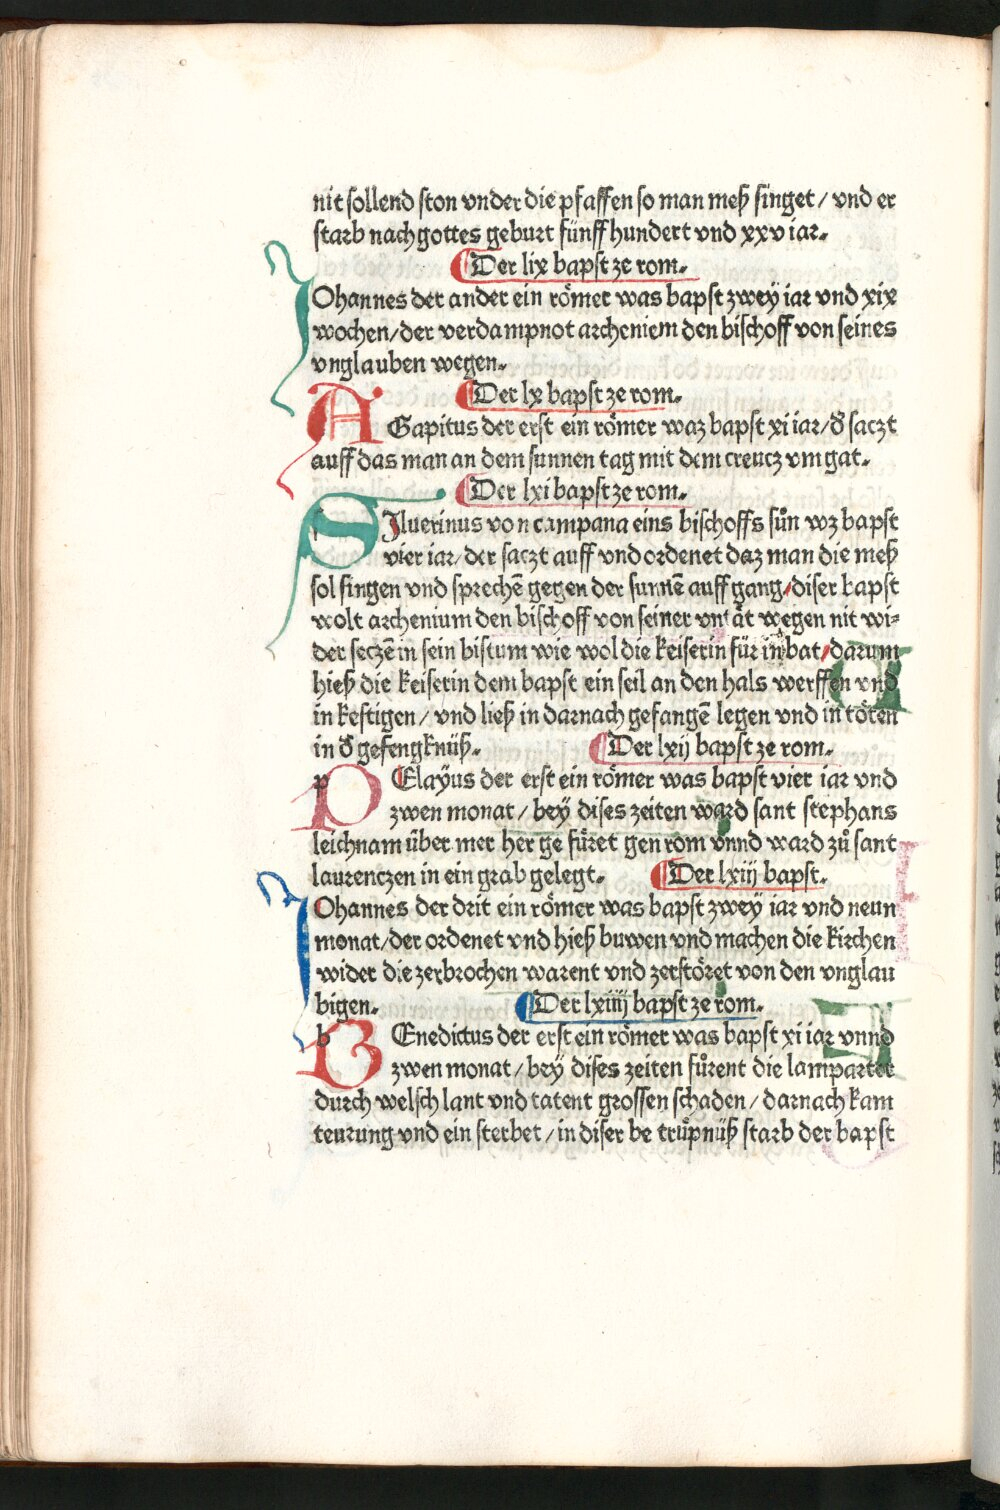 nit sollend ston vnder die pfaffen so man meß singet / vnd er
starb nach gottes geburt fünff hundert vnd xxv iar.
Der lix bapst ze rom.
IOhannes der ander ein römer was bapst zwey iar vnd xix
wochen / der verdampnot archeniem den bischoff von seines
vnglauben wegen.
Der lx bapst ze rom.
AGapitus der erst ein römer waz bapst xi iar / d̕ saczt
auff das man an dem sunnen tag mit dem creucz vm gat.
Der lxi bapst ze rom.
SJluerinus von campana eins bischoffs sůn wz bapst
vier iar / der saczt auff vnd ordenet daz man die meß
sol singen vnd sprechē gegen der sunnē auff gang / diser bapst
wolt archenium den bischoff von seiner vntät wegen nit wi⸗
der seczē in sein bistum wie wol die keiserin für in bat / darum
hieß die keiserin dem bapst ein seil an den hals werffen vnd
in kestigen / vnd ließ in darnach gefangē legen vnd in töten
in d̕ gefengknüß.
Der lxij bapst ze rom.
PElayus der erst ein römer was bapst vier iar vnd
zwen monat / bey dises zeiten ward sant stephans
leichnam über mer her ge füret gen rom vnnd ward zů sant
laurenczen in ein grab gelegt.
Der lxiij bapst.
IOhannes der drit ein römer was bapst zwey iar vnd neun
monat / der ordenet vnd hieß buwen vnd machen die kirchen
wider die zerbrochen warent vnd zerstöret von den vnglau
bigen.
Der lxiiij bapst ze rom.
BEnedictus der erst ein römer was bapst xi iar vnnd
zwen monat / bey dises zeiten fůrent die lamparter
durch welsch lant vnd tatent grossen schaden / darnach kam
teurung vnd ein sterbet / in diser be trůpnüß starb der bapst